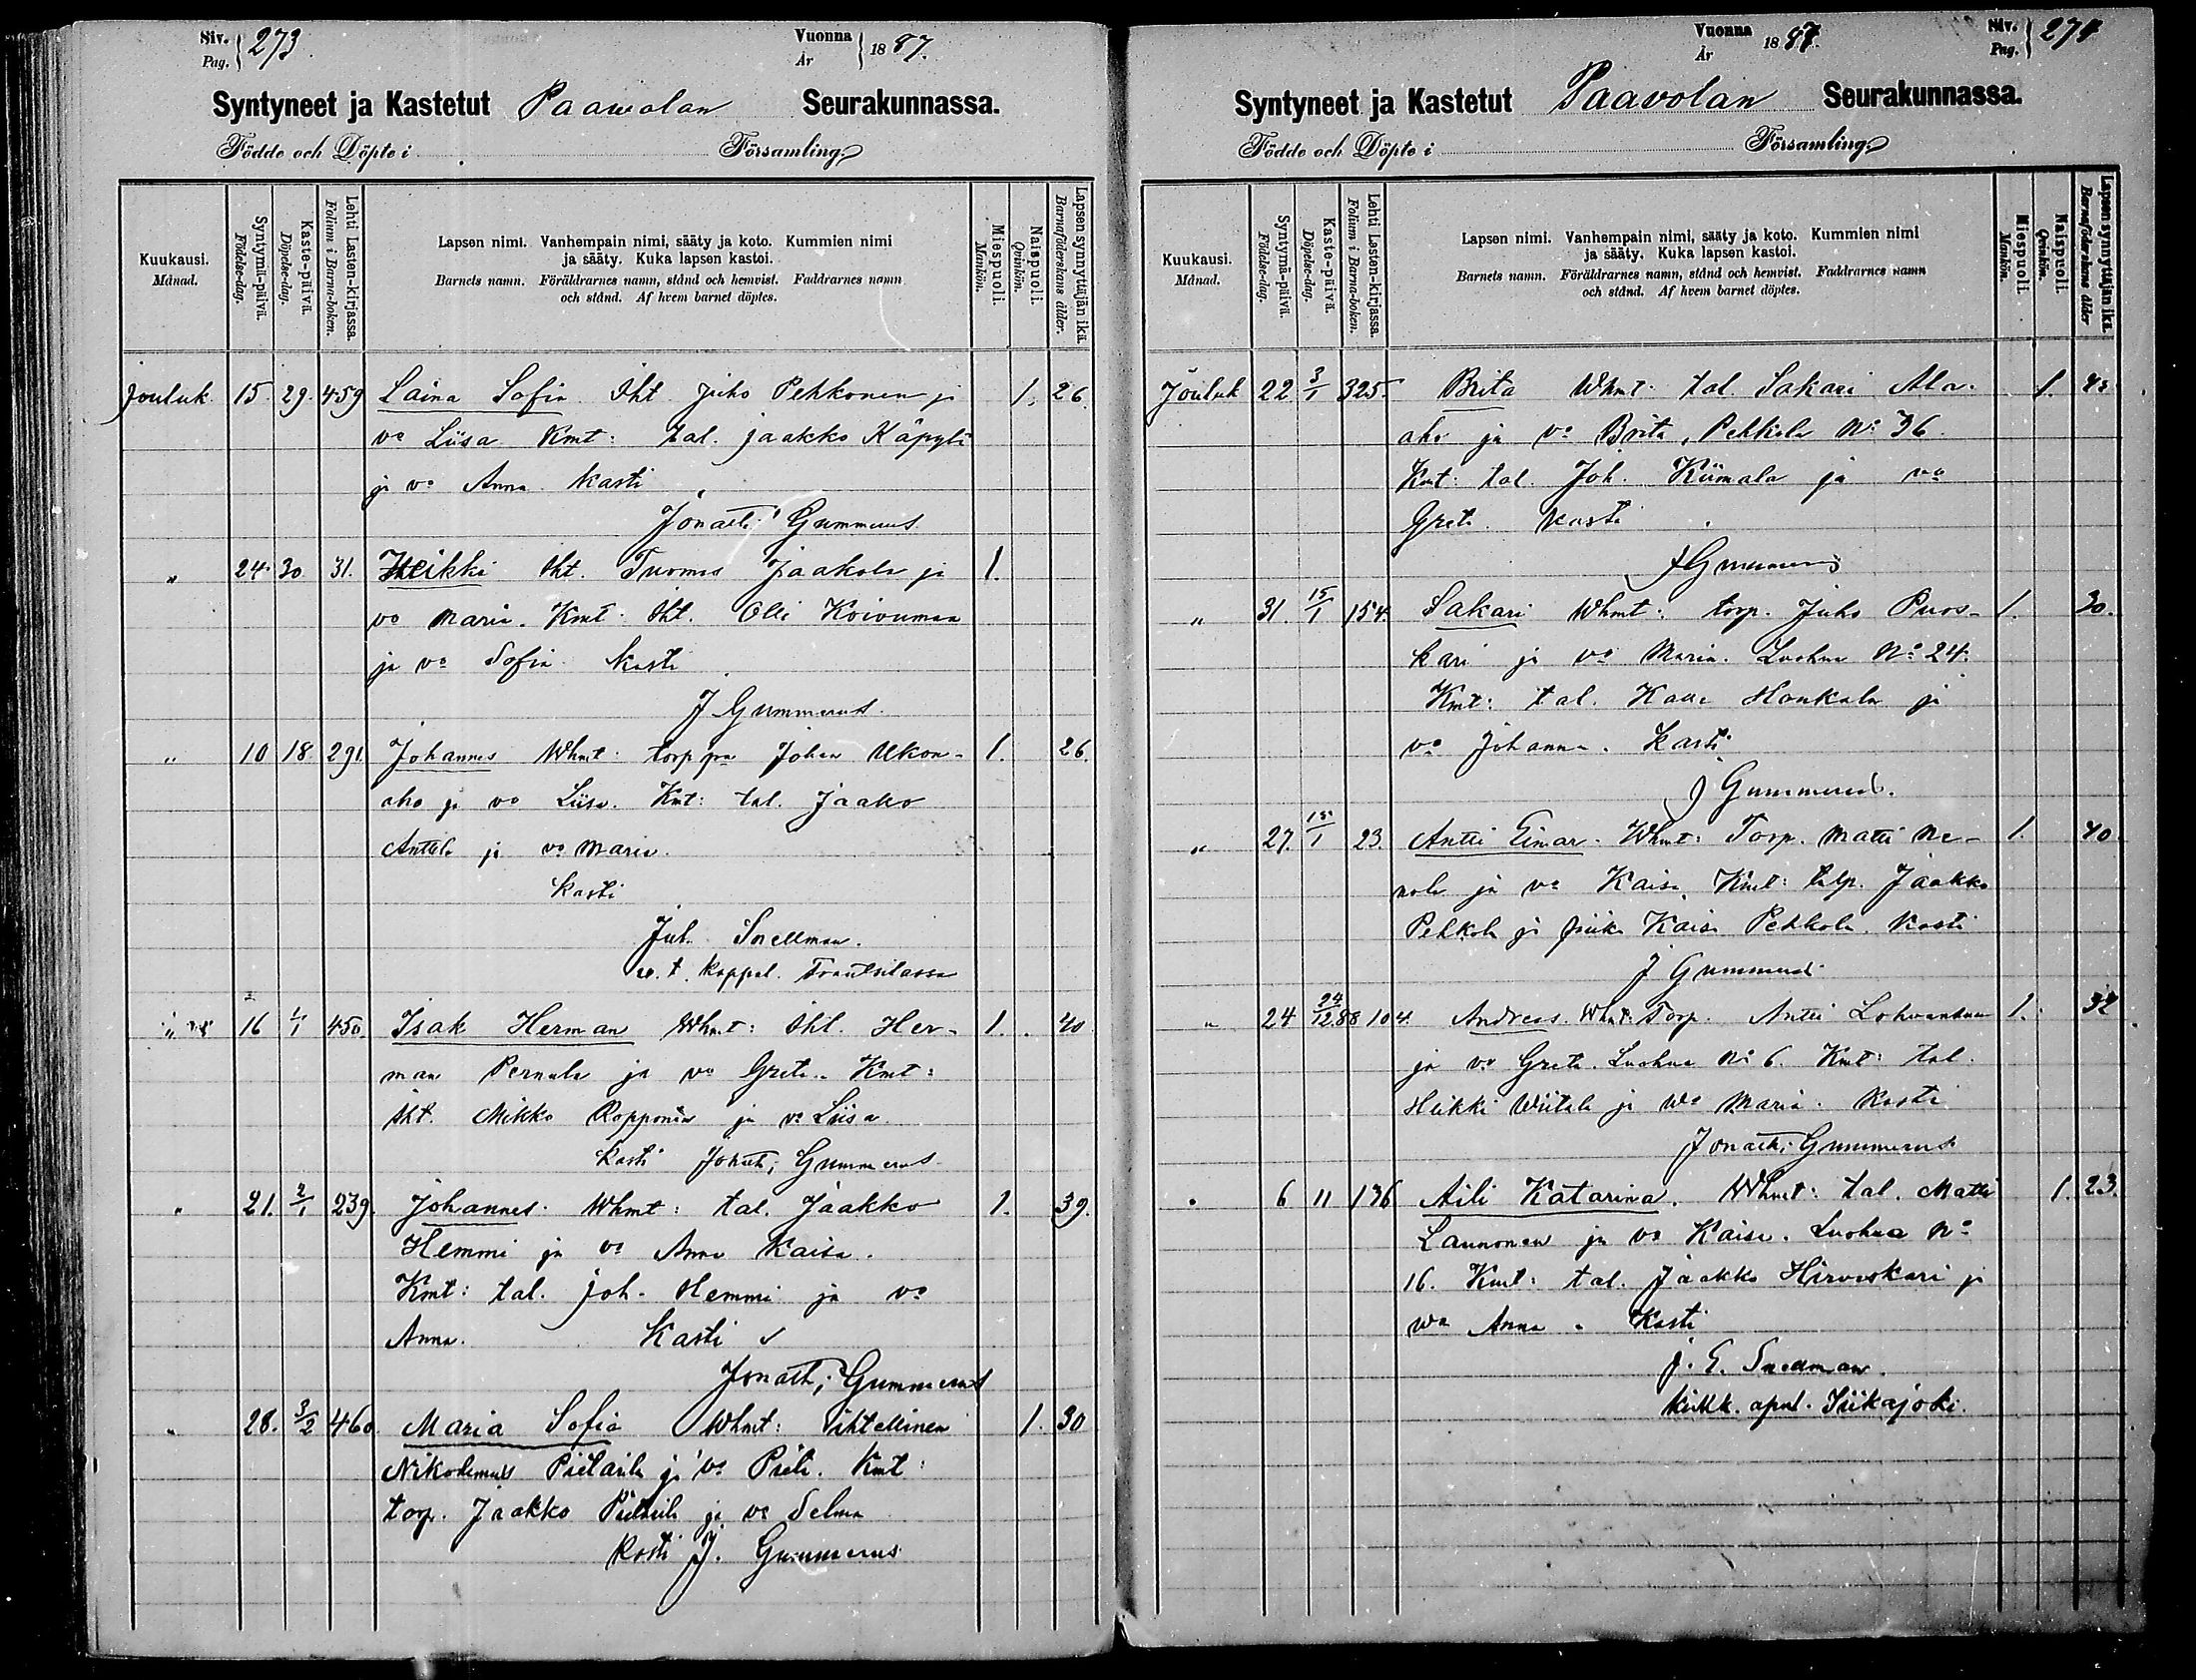 Siv. Pag. 273. Vuonna År 1887.
Syntyneet ja Kastetut Paawolan Seurakunnassa.
Födde och Döpte i Församling
Kuukausi. Månad.
Syntymä-päivä. Födelse-dag.
Kaste-päivä. Döpelse-dag.
Lehti Lasten-kirjassa. Folium i Barna-boken.
Lapsen nimi. Vanhempain nimi, sääty ja koto. Kummien nimi
ja sääty. Kuka lapsen kastoi.
Barnets namn. Föräldrarnes namn, stånd och hemvist. Faddrarnes namn
och stånd. Af hvem barnet döptes.
Miespuoli. Mankön.
Naispuoli. Qvinkön.
Lapsen synnyttäjän ikä. Barnaföderskans ålder.
Jouluk. 15. 29. 459 Laina Sofia Iht. Juho Pehkonen ja 1. 26.
vo Liisa Kmt: tal. Jaakko Käpylä
ja vo Anna Kasti
Jonath. Gummerus
„ 24. 30. 31. Heikki Iht. Tuomas Jaakola ja 1.
vo Maria. Kmt. Iht. Olli Koivumaa
ja vo Sofia Kasti
J Gummerus.
„ 10 18. 291. Johannes Whmt: torppa Johan Ukon- 1. 26.
aho ja vo Liisa. Kmt: tal. Jaako
Anttila ja vo Maria.
Kasti
Juh. Snellman.
v. t. kappal. Frantsilassa
„ 16 4/1 450. Isak Herman Whmt: Iht. Her- 1. 40
man Pernula ja vo Greta. Kmt:
Iht. Mikko Ropponen ja vo Liisa.
Kasti Jonath; Gummerus
„ 21. 2/1 239. Johannes. Whmt: tal. Jaakko 1. 39.
Hemmi ja vo Anna Kaisa.
Kmt: tal. Joh. Hemmi ja vo
Anna. Kasti
Jonath; Gummerus
„ 28. 3/2 460. Maria Sofia Whmt: ihtellinen 1. 30
Nikodemus Pietarila ja vo Priita. Kmt:
torp. Jaakko Pietarila ja vo Selma
Kasti J. Gummerus
Vuonna År 1887. Siv. Pag. 274
Syntyneet ja Kastetut Paavolan Seurakunnassa.
Födde och Döpte i Församling
Kuukausi. Månad.
Syntymä-päivä. Födelse-dag.
Kaste-päivä. Döpelse-dag.
Lehti Lasten-kirjassa. Folium i Barna-boken.
Lapsen nimi. Vanhempain nimi, sääty ja koto. Kummien nimi
ja sääty. Kuka lapsen kastoi.
Barnets namn. Föräldrarnes namn, stånd och hemvist. Faddrarnes namn
och stånd. Af hvem barnet döptes.
Miespuoli. Mankön.
Naispuoli. Qvinkön.
Lapsen synnyttäjän ikä. Barnaföderskans ålder
Jouluk 22 3/1 325. Brita Whmt. tal. Sakari Ala- 1.
aho ja vo Brita, Pehkola No 36.
Kmt: tal. Joh. Kiimala ja vo
Greta. Kasti
J Gummerus
„ 31. 15/1 154. Sakari Whmt: torp. Juho Puos- 1. 30.
kari ja vo Maria. Luohua No 24.
Kmt: tal. Kalle Honkala ja
vo Johanna. Kasti
J Gummerus.
„ 27. 15/1 23. Antti Einar. Whmt: Torp. Matti Me- 1. 40
nola ja vo Kaisa. Kmt: talp. Jaakko
Pehkola ja piika Kaisa Pehkola. Kasti
J Gummerus
„ 24 24/12.88 104. Andreas. Whmt: Torp. Antti Lohvantaus 1. 32
ja vo Greta. Luohua No 6. Kmt: tal.
Heikki Wiitala ja wo Maria. Kasti
Jonath; Gummerus
„ 6 11 136 Aili Katarina. Whmt: tal. Matti 1. 23.
Launonen ja vo Kaisa. Luohua No
16. Kmt: tal. Jaakko Hirvaskari ja
wo Anna. Kasti
J. E. Snellman.
kirkk. apul. Siikajoki.